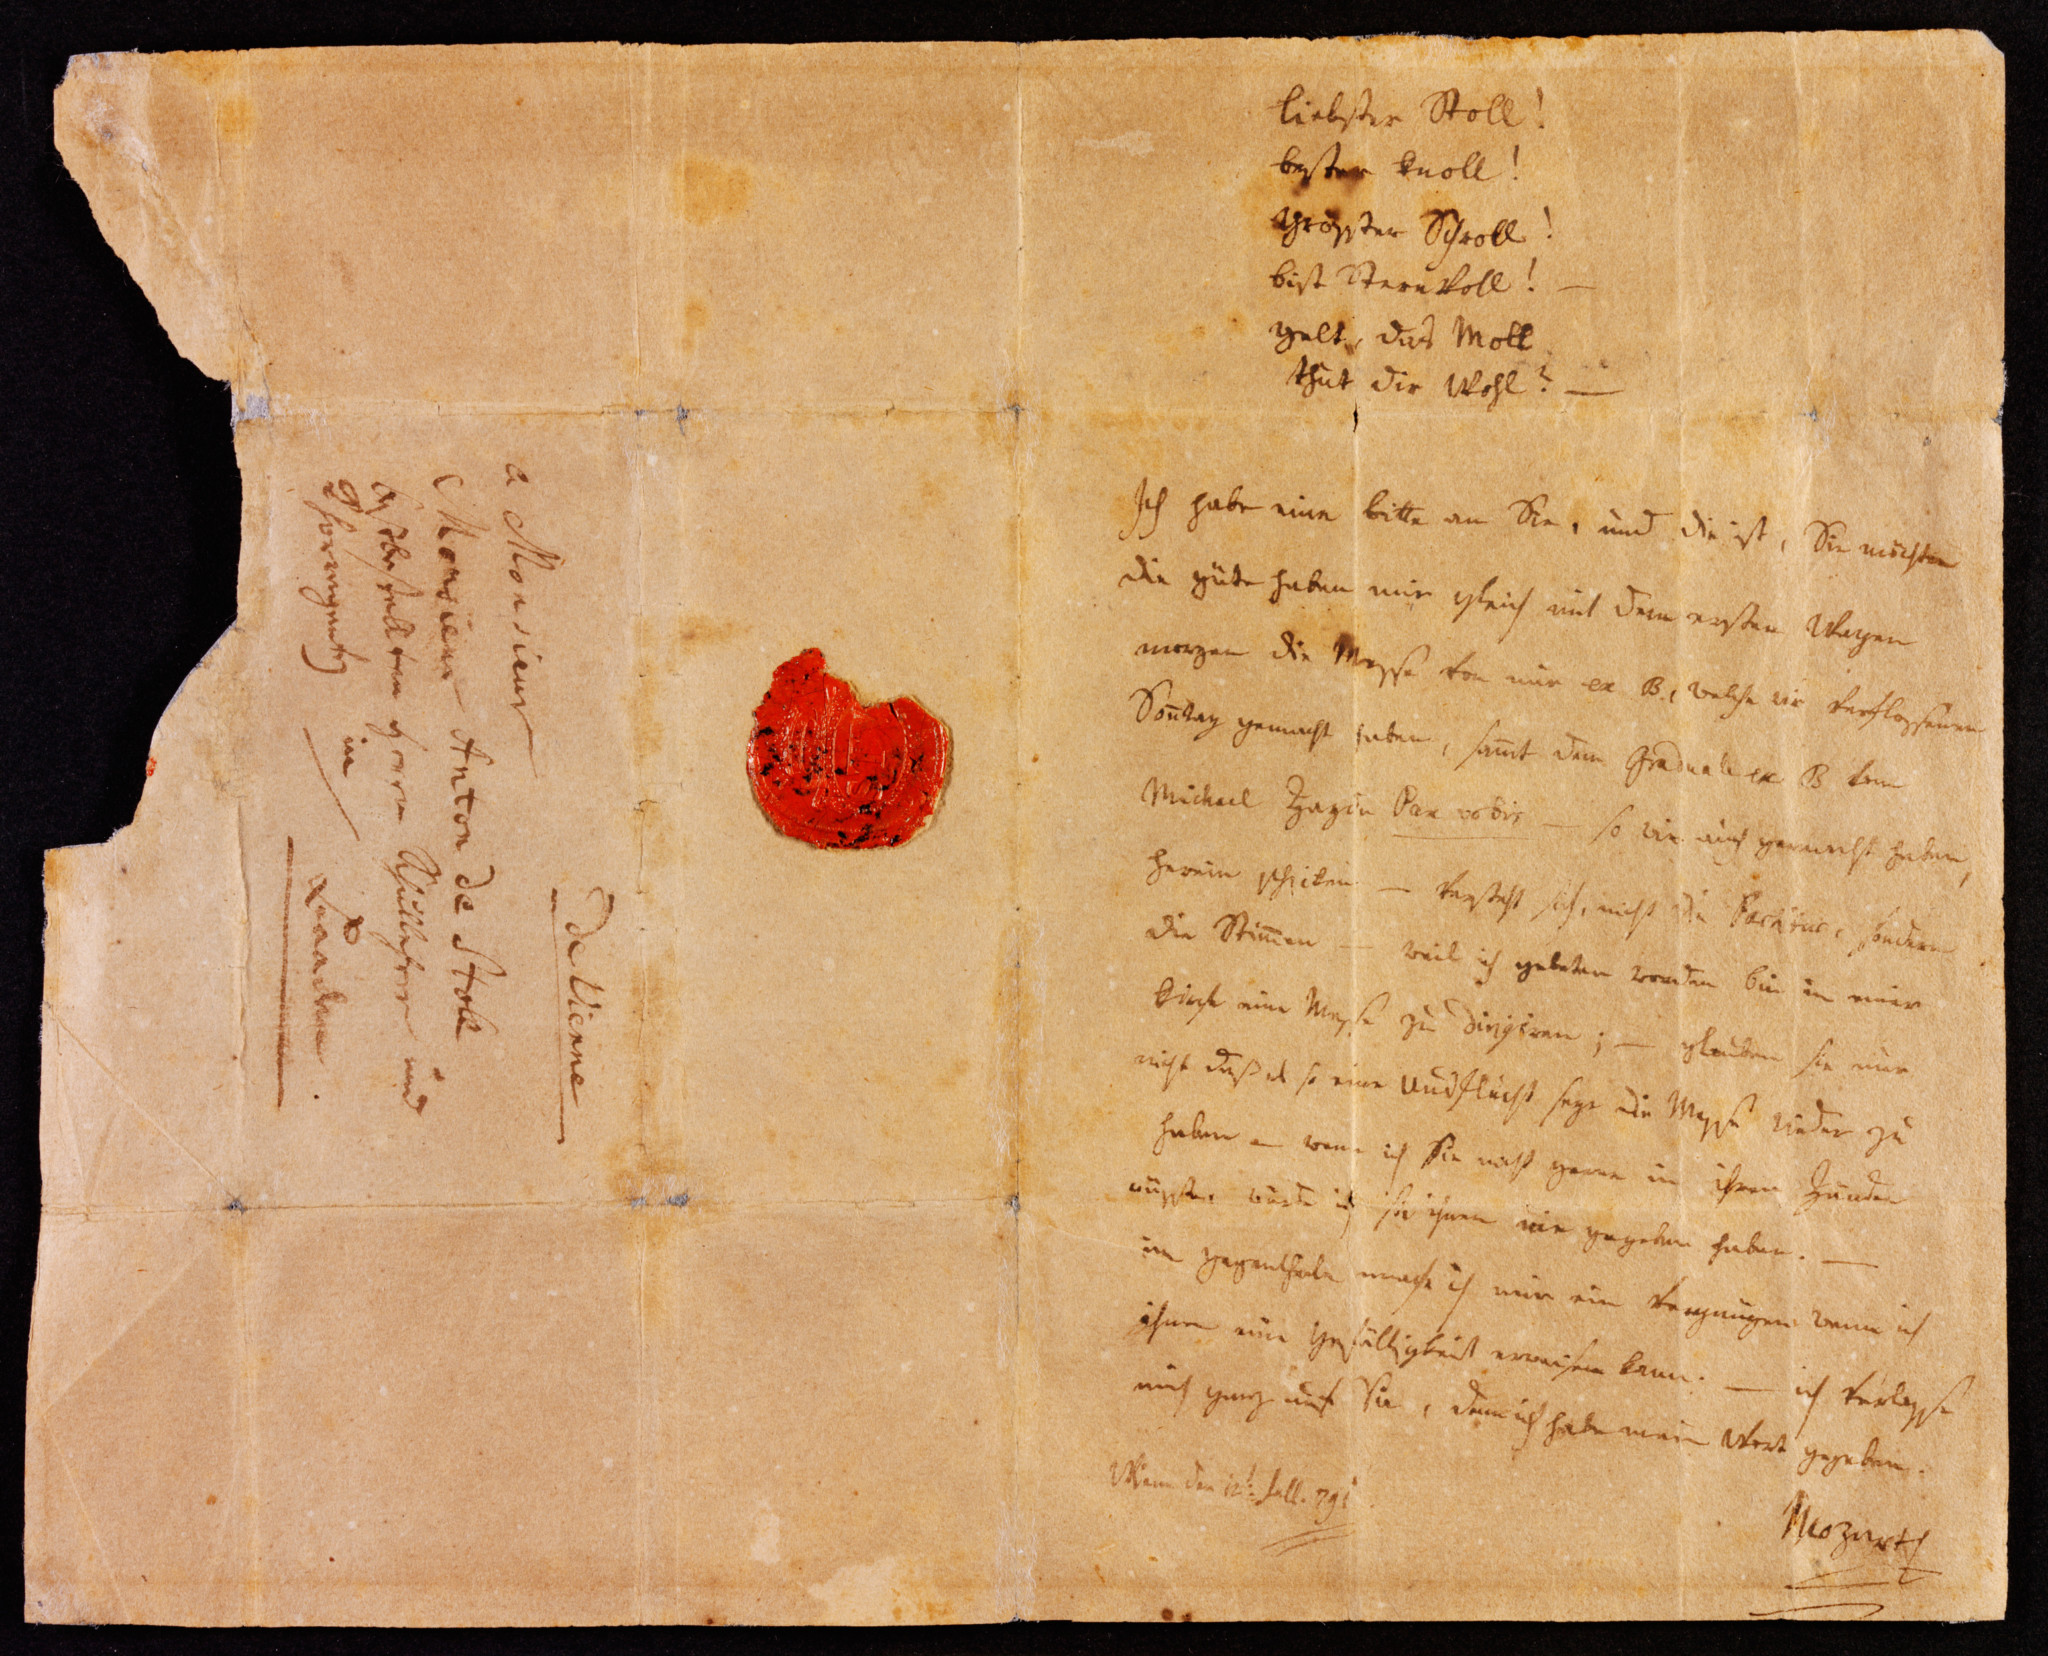 liebster Stoll!
bester knoll!
grösster Schroll!
bist Sternvoll! —
gelt, das Moll
thut dir Wohl? —
Ich habe eine bitte an Sie, und die ist, Sie möchten
die güte haben mir gleich mit dem ersten Wagen
morgen die Messe von mir ex B, welche wir verflossenen
Soñtag gemacht haben, sam̄t dem Graduale ex B vom
Michael Haydn Pax vobis — so wir auch gemacht haben,
herein schicken — versteht sich, nicht die Partitur, sondern
die Stim̄en — weil ich gebeten worden bin in einer
kirche eine Messe zu dirigiren; — glauben sie nur
nicht daß es so eine Ausflucht seye die Messe wieder zu
haben — wenn ich Sie nicht gerne in ihren Händen
wüsste, würde ich sie ihnen nie gegeben haben. —
im gegentheile mache ich mir ein vergnügen wenn ich
ihnen eine gefälligkeit erweisen kann. — ich verlasse
mich ganz auf Sie, denn ich habe mein Wort gegeben.
Wien den 12t Jull. 791
Mozart
de Vienne
a Monsieur
Monsieur Anton de Stoll
Herrn Schullehrer und
Chorregenten
in
Baaden.